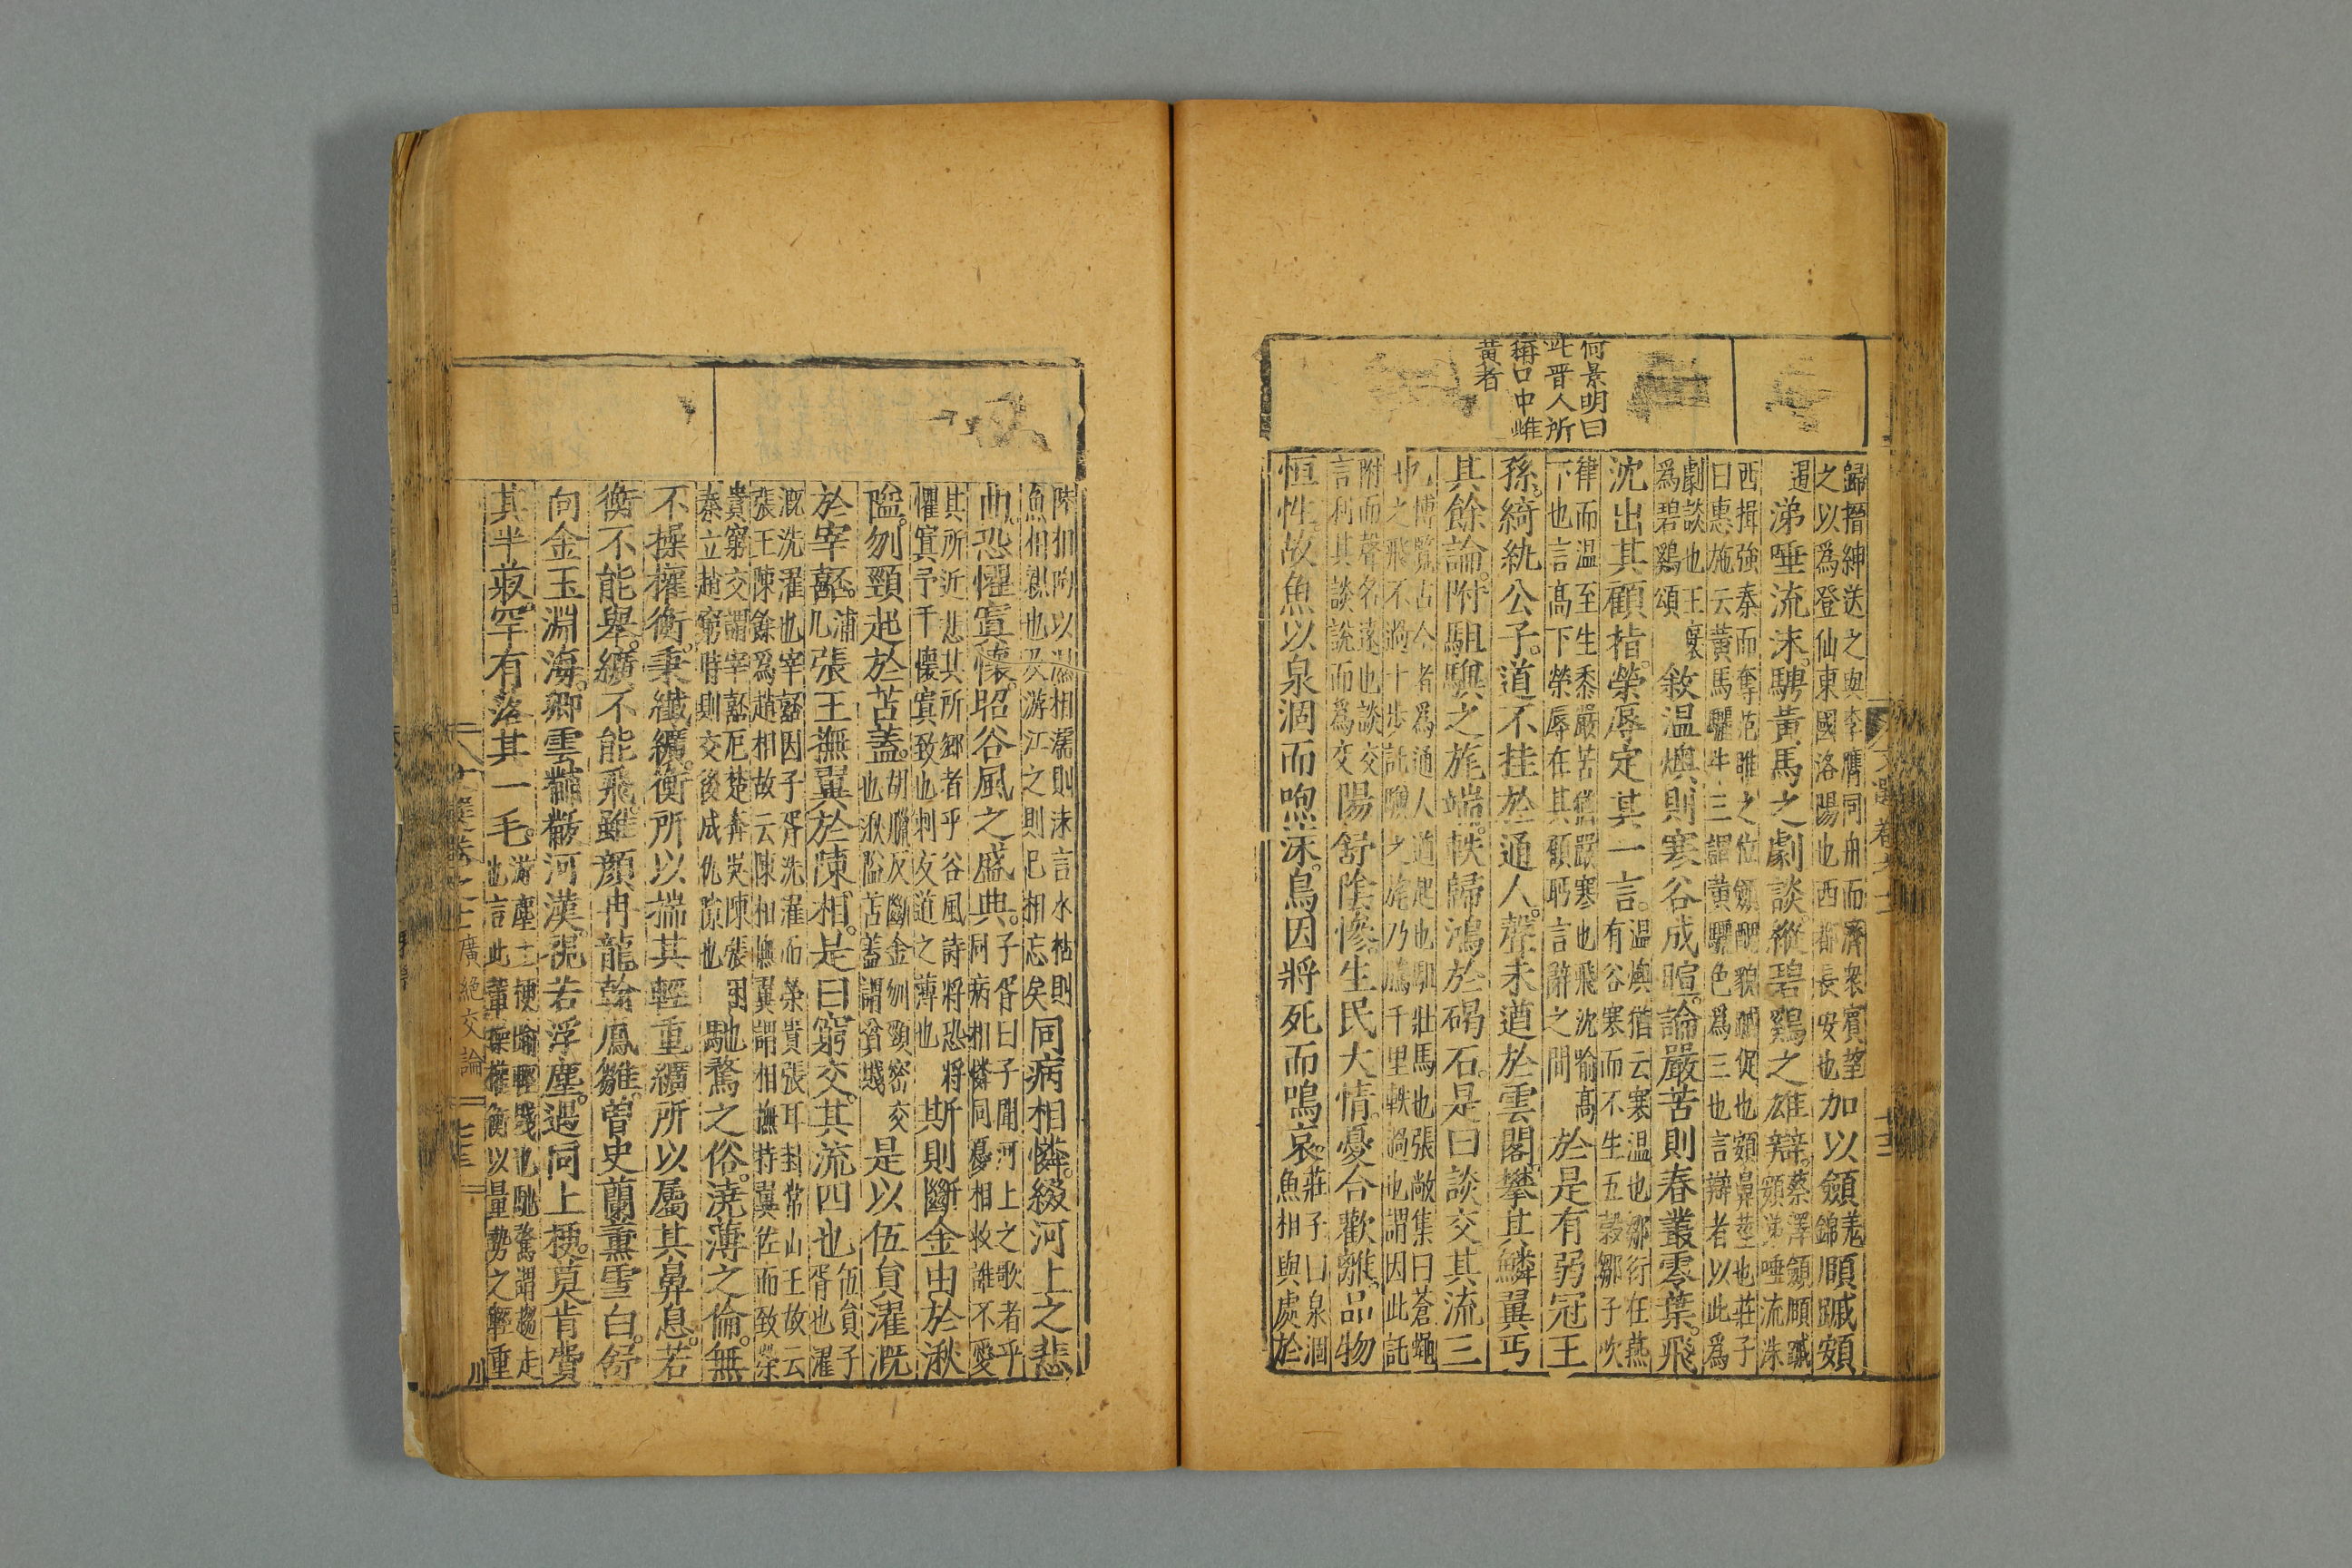 何景明曰
此晉人所
稱口中雌
黃者
歸搢紳送之與李膺同舟而濟衆賓望
之以爲登仙東國洛陽也西都長安也
加以顉
錦
頤蹙頞
涕唾流沫騁黃馬之劇談縱碧鷄之雄辯
蔡澤顉頤蹙
頞涕唾流沫
西揖強秦而奪范雎之位顉醜貌蹙促也頞鼻莖也莊子
曰惠施云黃馬驪牛三謂黃驪色爲三也言辯者以此爲
劇談也王襃
爲碧鷄頌
敘温燠則寒谷成暄論嚴苦則春叢零葉飛
沈出其顧指榮辱定其一言
温燠猶云寒温也鄒衍在燕
有谷寒而不生五穀鄒子吹
律而温至生黍嚴苦猶嚴寒也飛沈喻高
下也言高下榮辱在其顧眄言辭之間
於是有弱冠王
孫綺紈公子道不挂於通人聲未遒於雲閣攀其鱗翼丐
其餘論附駔驥之旄端軼歸鴻於碣石是曰談交其流三
也博覽古今者爲通人遒起也駔壯馬也張敞集曰蒼蠅
之飛不過十步託驥之旄乃騰千里軼過也謂因此託
附而聲名遠也談交
言利其談說而爲交
陽舒陰慘生民大情憂合歡離品物
恒性故魚以泉涸而呴沫鳥因將死而鳴哀
莊子曰泉涸
魚相與處於
陸相呴以濕相濡則沫言水枯則
魚相親也及游江之則已相忘矣
同病相憐綴河上之悲
曲恐懼寘懷昭谷風之盛典
子胥曰子聞河上之歌者乎
同病相憐同憂相救誰不愛
其所近悲其所鄉者乎谷風詩將恐將
懼寘予于懷寘致也刺友道之薄也
斯則斷金由於湫
隘刎頸起於苫蓋
胡臘反斷金刎頸密交
也湫隘苫蓋謂貧賤
是以伍員濯漑
於宰嚭
浦
几
張王撫翼於陳相是曰窮交其流四也
伍員子
胥也濯
漑洗濯也宰嚭因子胥洗濯而榮貴張耳封常山王故云
張王陳餘爲趙相故云陳相撫翼謂相撫持翼佐而致榮
貴窮交謂宰嚭厄楚奔吳陳張困
秦立趙窮時則交後成仇隙也
馳騖之俗澆薄之倫無
不操權衡秉纖纊衡所以揣其輕重纊所以屬其鼻息若
衡不能舉纊不能飛雖顔冉龍翰鳳雛曾史蘭薰雪白舒
向金玉淵海卿雲黼黻河漢視若浮塵遇同土梗莫肯費
其半菽罕有落其一毛
游塵土梗喻輕賤也馳騖謂趨走
也言此輩操權衡以量勢之輕重
廣絕交論